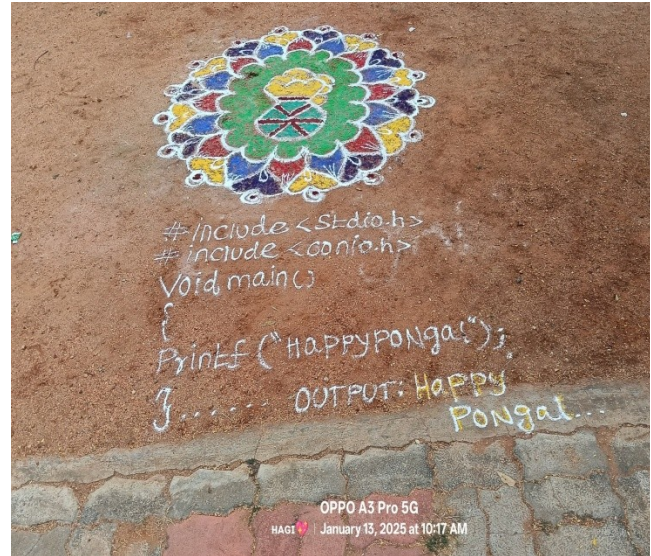 # include <Stdio.h>
# include <conio.h>
Void main()
{
Printf ("HAPPYPONgal");
}...... OUTPUT: HAPPY
PONgal...
OPPO A3 Pro 5G
HAGI💖 | January 13, 2025 at 10:17 AM